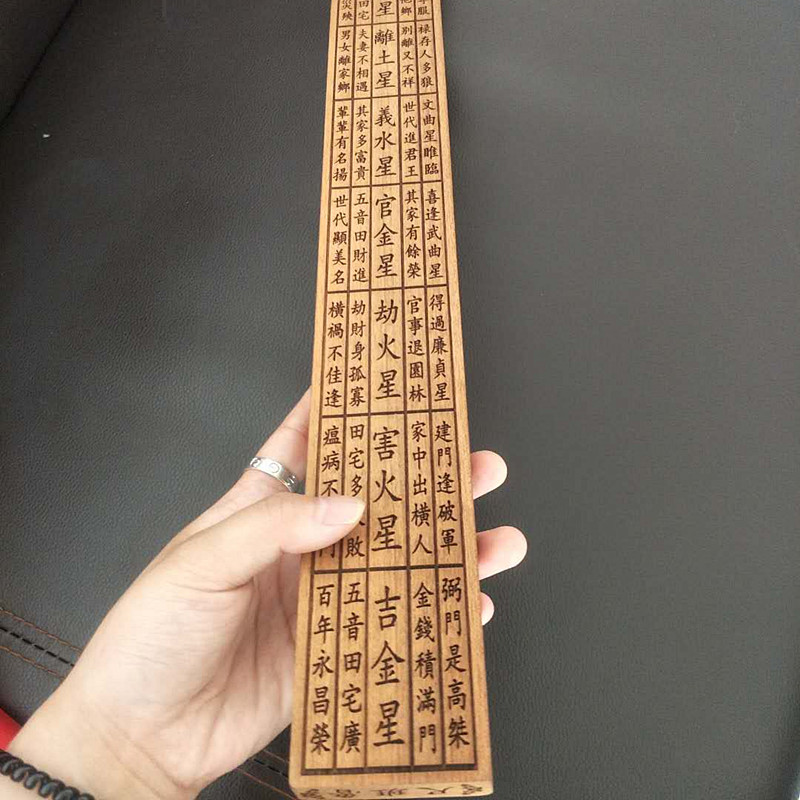 服
鄉
星
田宅
災殃
禄存人多狼
别離又不祥
離土星
夫妻不相遇
男女離家鄉
文曲星雎臨
世代進君王
義水星
其家多富貴
輩輩有名揚
喜逢武曲星
其家有餘榮
官金星
五音田財進
世代顯美名
得過廉貞星
官事退園林
劫火星
劫財身孤寡
橫禍不佳逢
建門逢破軍
家中出橫人
害火星
田宅多敗
瘟病不門
弼門是高桀
金錢積滿門
吉金星
五音田宅廣
百年永昌榮